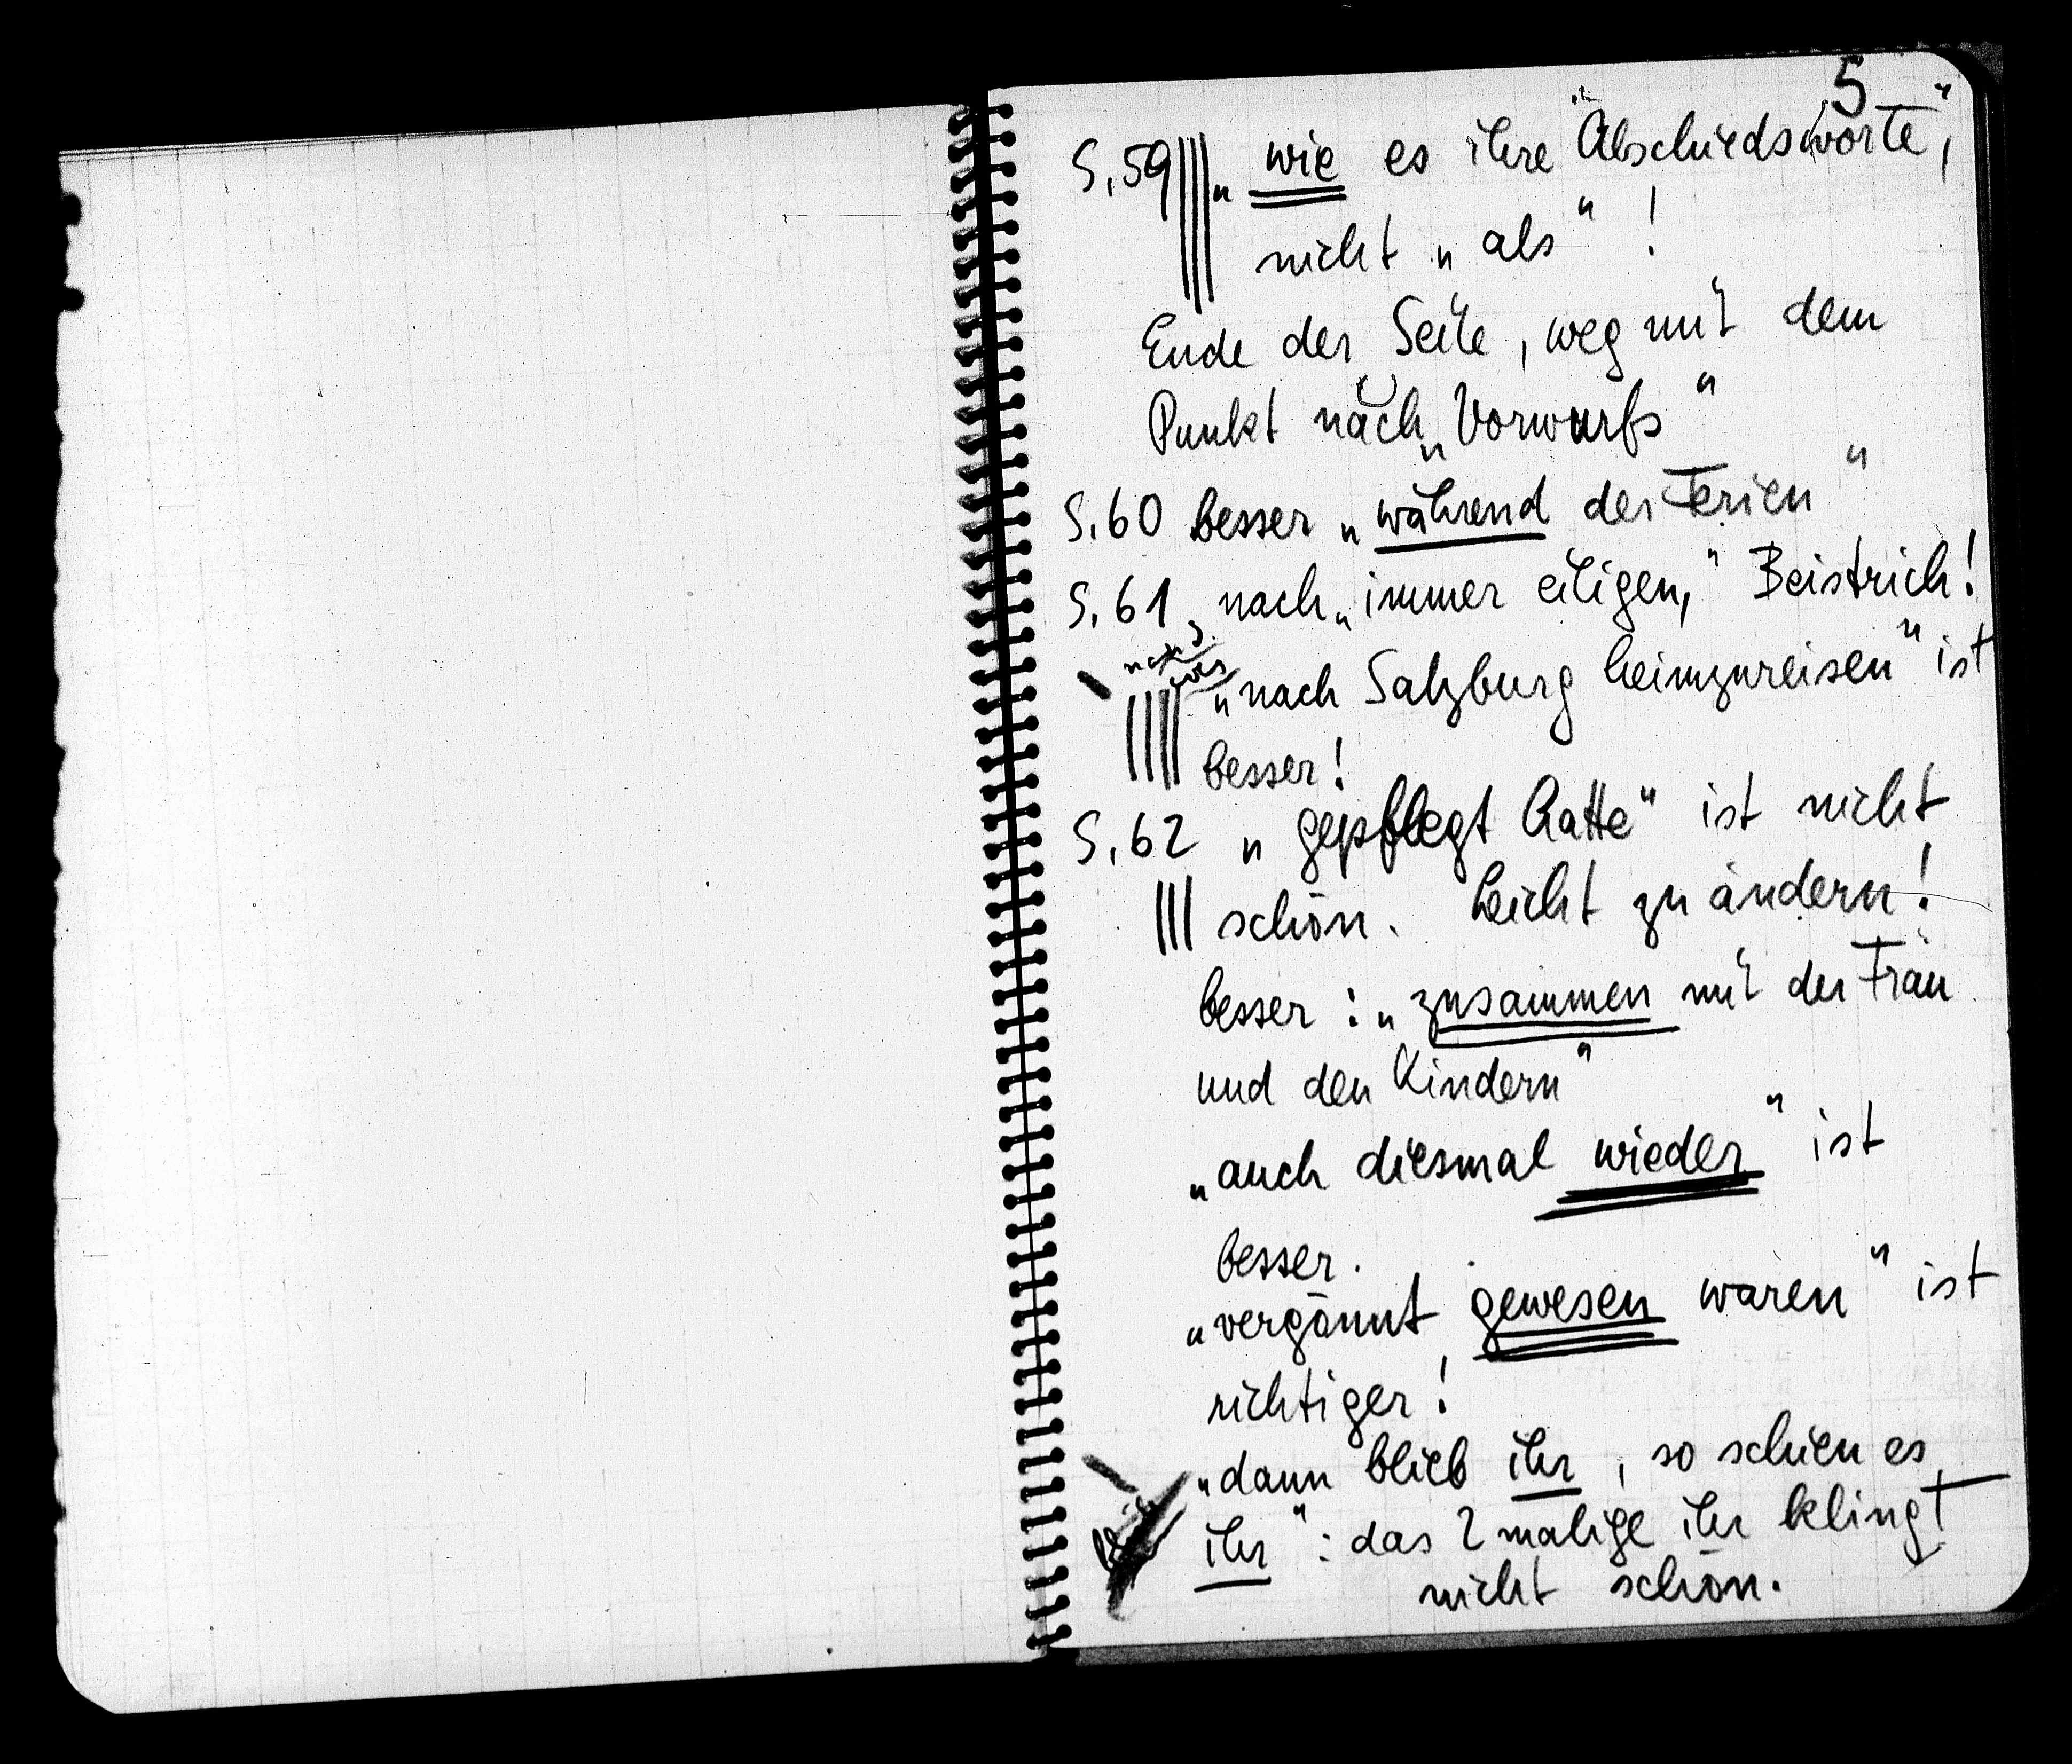 5
S. 59 „wie es ihre Abschiedsworte",
nicht „als" !
Ende der Seite, weg mit dem
Punkt nach „Vorwurfs"
S. 60 besser „während der Ferien"
S. 61, nach „immer eiligen," Beistrich!
„nach Salzburg heimzureisen" ist
besser!
S. 62 „gepflegt hatte" ist nicht
schön. Leicht zu ändern!
besser : „zusammen mit der Frau
und den Kindern"
„auch diesmal wieder" ist
besser.
„vergönnt gewesen waren" ist
richtiger!
„dann blieb ihr, so schien es
ihr" : das 2malige ihr klingt
nicht schön.